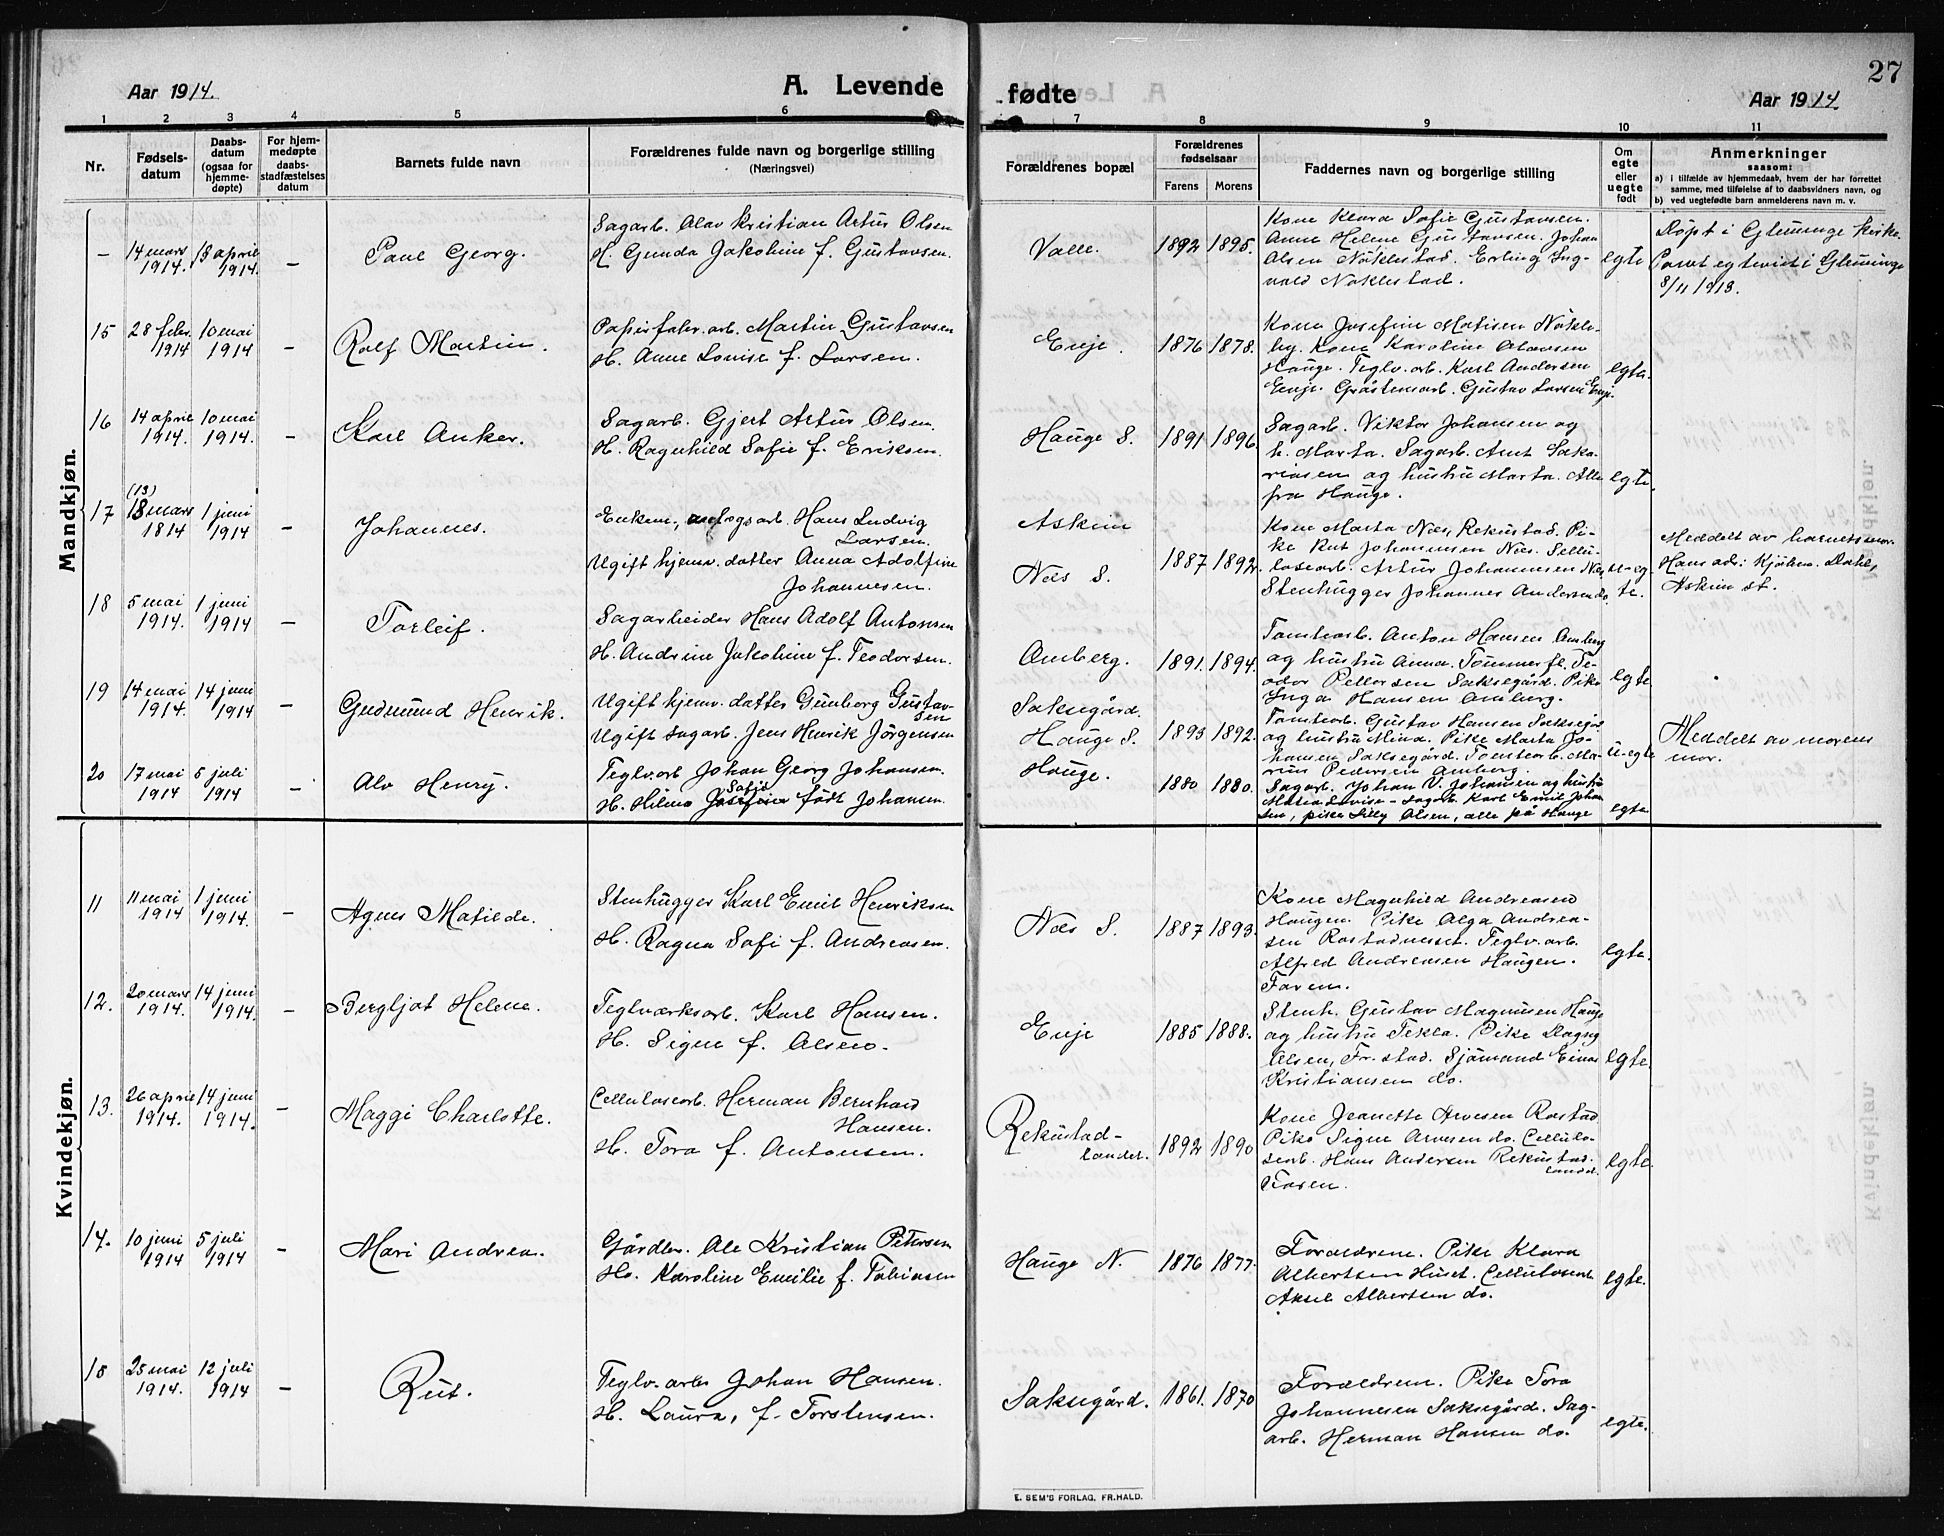 27
Aar 1914.
A. Levende
fødte
Aar 1914
1 2 3 4 5 6 7 8 9 10 11
Nr.
Fødsels-
datum
Daabs-
datum
(ogsaa for
hjemme-
døpte)
For hjem-
medøpte
daabs-
stadfæstelses
datum
Barnets fulde navn
Forældrenes fulde navn og borgerlige stilling
(Næringsvei)
Forældrenes bopæl
Forældrenes
fødselsaar
Farens
Morens
Faddernes navn og borgerlige stilling
Om
egte
eller
uegte
født
Anmerkninger
saasom:
a) i tilfælde av hjemmedaab, hvem der har forrettet
samme, med tilføielse af to daabsvidners navn, og
b) ved uegtefødte barn anmelderens navn m. v.
Mandkjøn.
–
14 mars
1914.
13 april
1914.
–
Paul Georg.
Sagarb. Olav Kristian Artur Olsen
H. Gunda Jakobine f. Gustavsen.
Valle.
1892
1895.
Kone Klara Sofie Gustavsen.
Anne Helene Gustavsen. Johan
Olsen Nöklestad. Erling Ing-
vald Nöklestad.
egte
Döpt i Glemminge kirke.
Paret egteviet i Glemminge
8/11 1913.
15
28 febr.
1914
10 mai
1914
–
Rolf Martin.
Papirfabr.arb. Martin Gustavsen
H. Anne Lovise f. Larsen.
Enje.
1876
1878.
Kone Josefine Matisen Nökle-
by. Kone Karoline Olavsen
Hauge. Teglv.arb. Karl Andersen
Enje. Gråstensarb. Gustav Larsen Enje.
egte.
16
14 april
1914.
10 mai
1914.
–
Karl Anker.
Sagarb. Gjert Artur Olsen.
H. Ragnhild Sofie f. Eriksen.
Hauge S.
1891
1896.
Sagarb. Viktor Johansen og
h. Marta. Sagarb. Arnt Saka-
riasen og hustru Marta. Alle
fra Hauge.
egte.
17
(13)
13 mars
1814
1 juni
1914
–
Johannes.
Enkem, Hans Ludvig
Larsen.
Ugift hjemv. datter Anna Adolfine
Johannesen.
Askim
Næs S.
1887
1892.
Kone Marta Næs, Rekustad. Pi-
ke Rut Johannsen Næs. Sellu-
losearb. Artur Johannsen Næs,
Stenhugger Johannes Andersen do.
u-eg-
te.
Meddelt av barnets mor.
Hans adr: Kjöbm. Dahl,
Askim st.
18
5 mai
1914.
1 juni
1914
–
Torleif.
Sagarbeider Hans Adolf Antonsen
H. Andrine Jakobine f. Teodorsen.
Omberg.
1891.
1894.
Tomtearb. Anton Hansen Omberg
og hustru Anna. Tömmerfl. Te-
odor Pettersen Saksegård. Pike
Inga Hansen Omberg.
egte
19
14 mai
1914.
14 juni
1914
–
Gudmund Henrik.
Ugift hjemv. datter Gunborg Gustav-
sen
Ugift sagarb. Jens Henrik Jörgensen
Saksegård.
Hauge S.
1893
1892.
Tomtearb. Gustav Hansen Saksegård
og hustru Mina. Pike Marta Jo-
hansen Saksegård. Tomtearb. Ma-
rius Pedersen Omberg.
u-egte
Meddelt av morens
mor.
20
17 mai
1914
5 juli
1914
–
Alv Henry.
Teglv.arb Johan Georg Johansen.
Sofie
H. Hilma Josefine født Johansen.
Hauge.
1880
1880.
Sagarb. Johan V. Johansen og hustru
Maria Lovise – Sagarb. Karl Emil Johan
sen, pike Lilly Olsen, alle på Hauge
egte
Kvindekjøn.
11
11 mai
1914
1 juni
1914.
–
Agnes Matilde.
Stenhugger Karl Emil Henriksen
H. Ragna Sofi f. Andreasen.
Næs S.
1887
1893.
Kone Magnhild Andreasen
Haugen. Pike Olga Andrea-
sen Rostadneset. Teglv.arb.
Alfred Andreasen Haugen.
Faren.
egte.
12.
20 mars
1914.
14 juni
1914.
–
Bergljot Helene.
Teglværksarb. Karl Hansen.
H. Signe f. Olsen.
Enje
1885
1888.
Stenh. Gustav Magnusen Hauge
og hustru Tekla. Pike Dagny
Olsen, Fr.stad. Sjömand Einar
Kristiansen do.
egte.
13.
26 april
1914.
14 juni
1914.
–
Maggi Charlotte.
Cellulosearb. Herman Bernhard
Hansen.
H. Tora f. Antonsen.
Rekustad-
landet.
1892
1890
Kone Jeanette Arvesen Rostad
Pike Signe Arvesen do. Cellulo-
searb. Hans Andersen Rekustad-
landet.
Faren.
egte.
14.
10 juni
1914
5 juli
1914
–
Mari Andrea.
Gårdbr. Ole Kristian Petersen
H. Karoline Emilie f. Tobiasen
Hauge N.
1876
1877.
Forældrene. Pike Klara
Albertsen Huset. Cellulosearb.
Aksel Albertsen do.
egte.
15
25 mai
1914.
12 juli
1914
–
Rut.
Teglv.arb Johan Hansen.
H. Laura, f. Torstensen.
Saksegård.
1861.
1870
Forældrene. Pike Tora
Johannesen Saksegård. Sag-
arb. Herman Hansen do.
egte.
E. SEM'S FORLAG, FR.HALD.